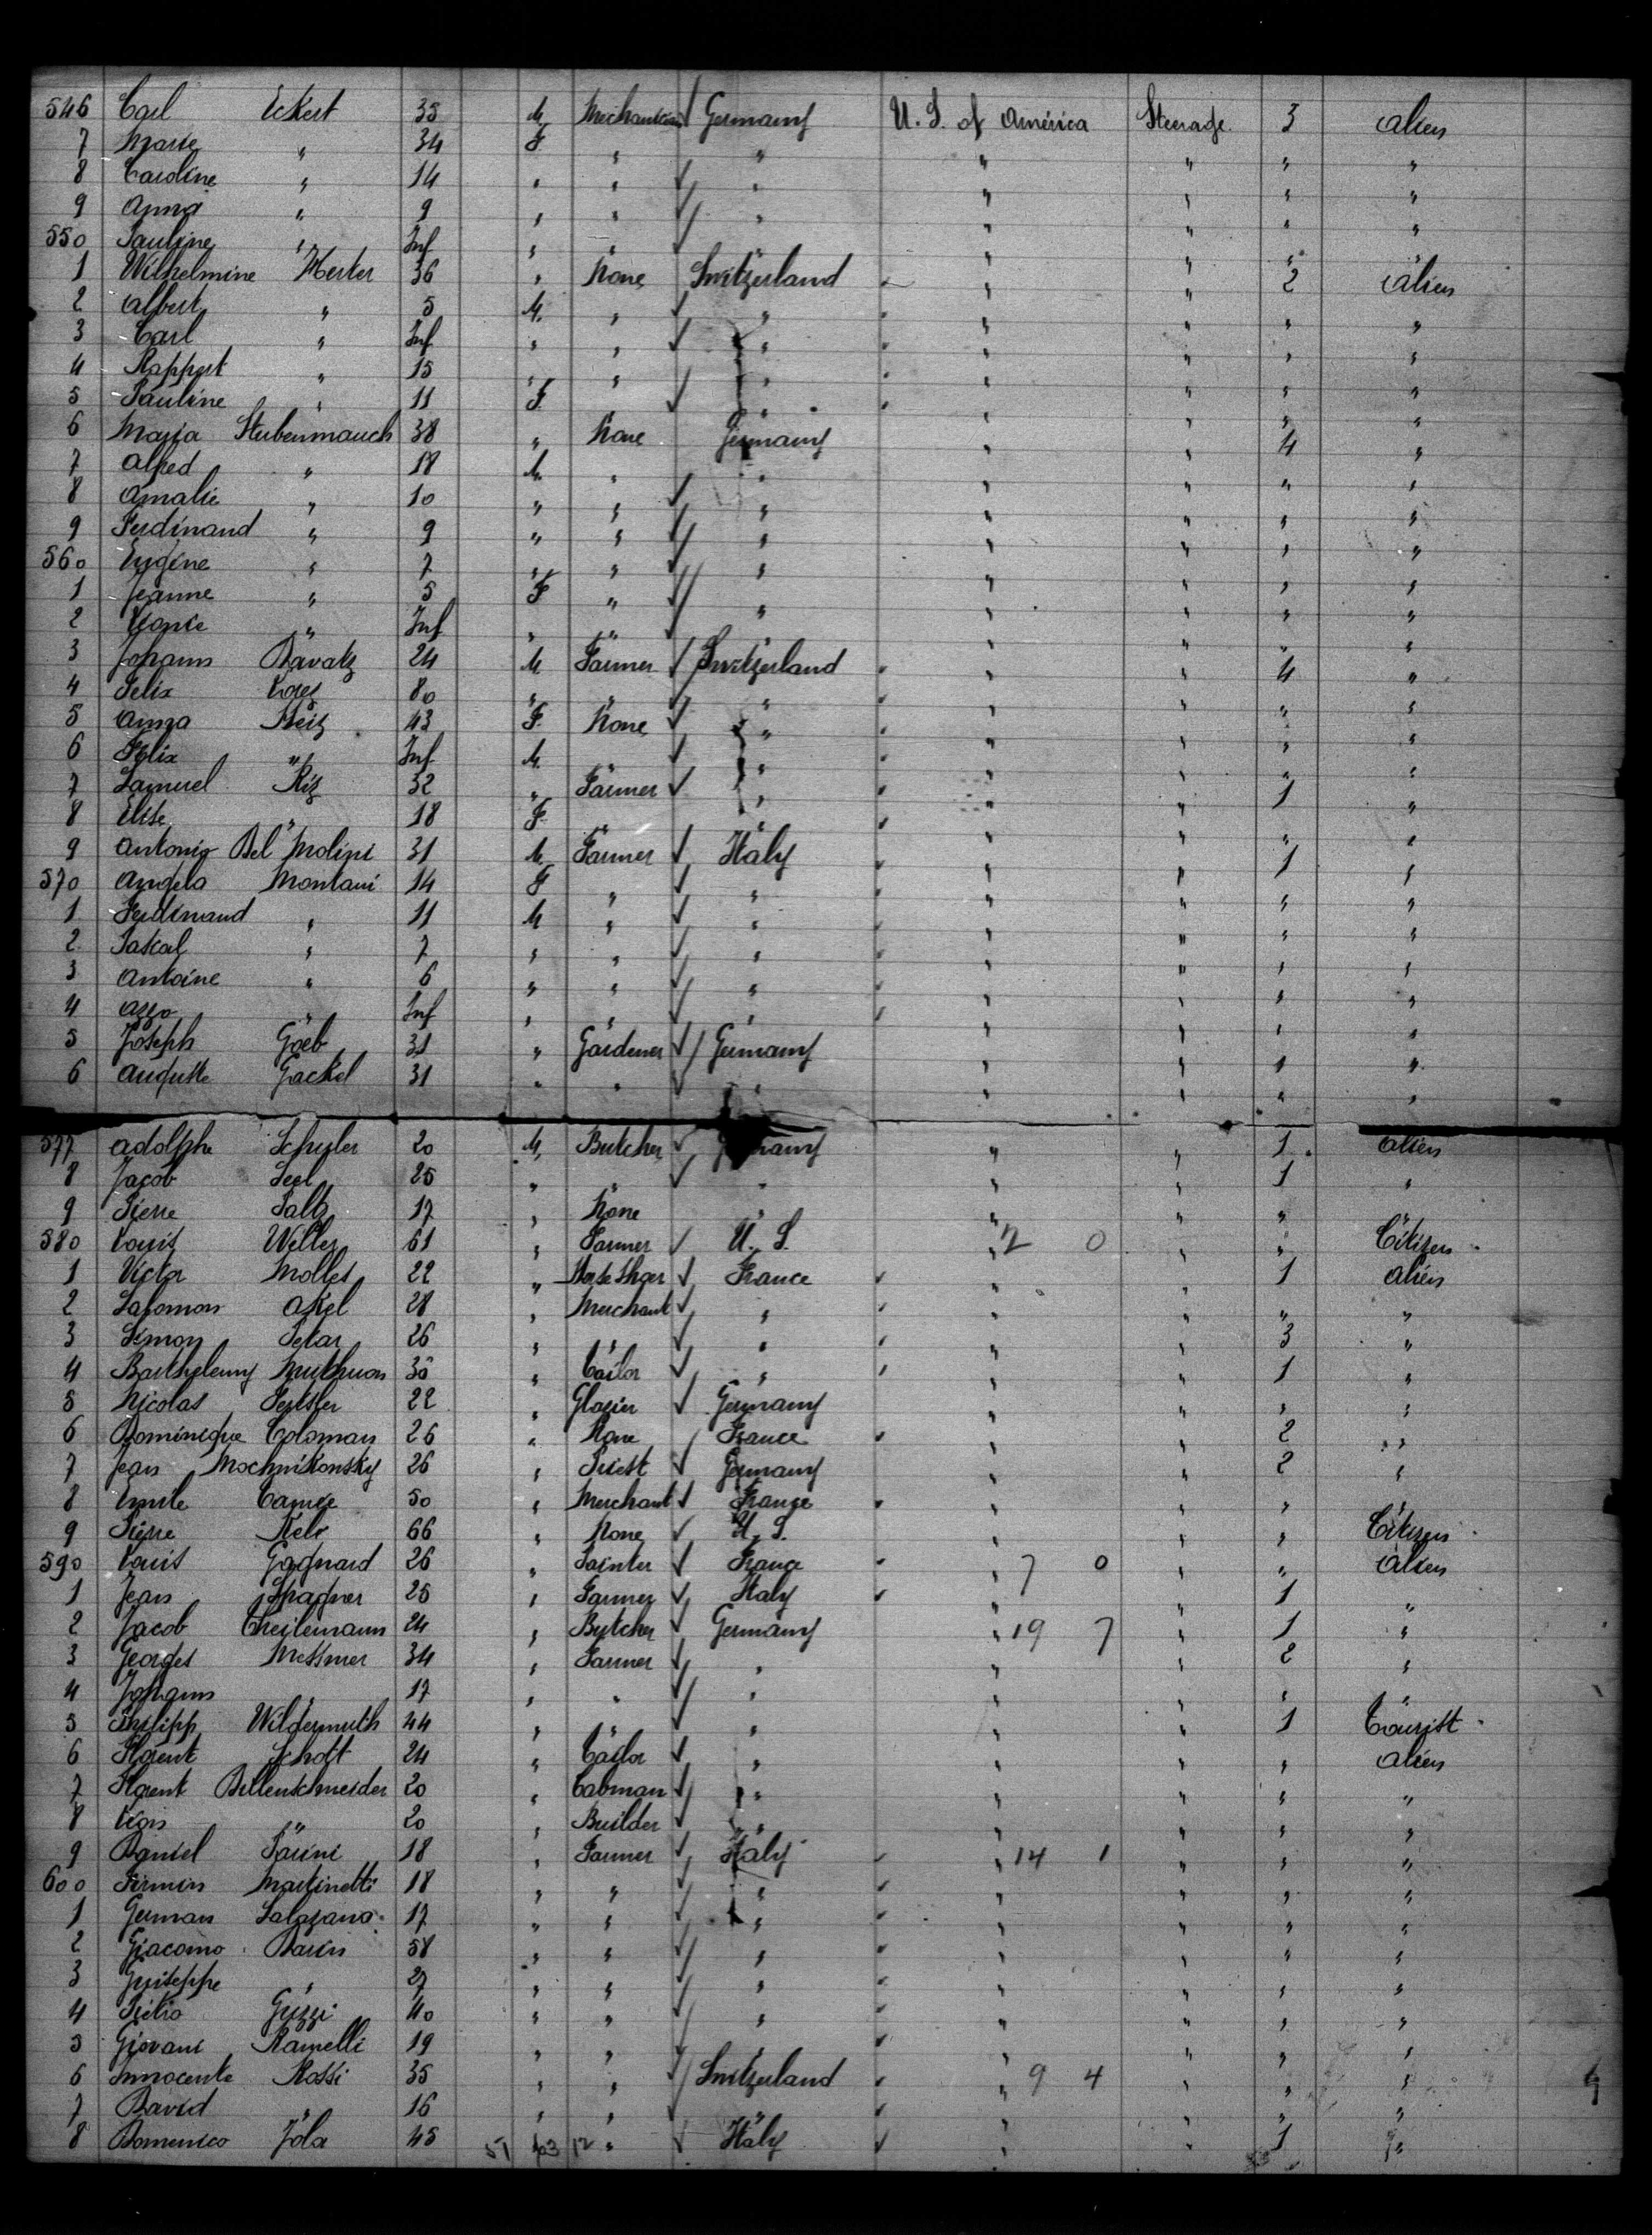 546 Carl Eckert 35 M. Mechanician Germany U. S. of América Steerage 3 alien
7 Marie " 34 F " " " " " "
8 Caroline " 14 " " " " " " "
9 Anna " 9 " " " " " " "
550 Pauline " Inf " " " " " " "
1 Wilhelmine Herter 36 " None Switzerland " " 2 alien
2 Albert " 5 M. " " " " " "
3 Carl " Inf " " " " " " "
4 Ruppert " 15 " " " " " " "
5 Pauline " 11 F " " " " " "
6 Maria Stubenmauch 38 " None Germany " " 4 "
7 Alfred " 18 M. " " " " " "
8 Amalie " 10 " " " " " " "
9 Ferdinand " 9 " " " " " " "
560 Eugène " 7 " " " " " " "
1 Jeanne " 5 F " " " " " "
2 " Inf " " " " " " "
3 Johann Davatz 24 M Farmer Switzerland " " 4 "
4 Felix 80 " " " " " " "
5 Anna 43 F. None " " " " "
6 Felix " Inf. M. " " " " " "
7 Samuel Riz 32 " Farmer " " " 1 "
8 Elise " 18 F. " " " " " "
9 Antonio Del Molini 31 M Farmer Italy " " 1 "
570 Angela Montani 14 F " " " " " "
1 Ferdinand " 11 M " " " " " "
2 Paskal " 7 " " " " " " "
3 Antoine " 6 " " " " " " "
4 Azzo " Inf " " " " " " "
5 Joseph Goeb 31 " Gardener Germany " " " "
6 Auguste Gackel 31 " " " " " " "
577 Adolphe Schuler 20 M. Butcher Germany " " 1 alien
8 Jacob Seel 25 " " " " " 1 "
9 Pierre Saltz 17 " None " " " " "
580 Louis Weller 61 " Farmer U. S. " 2 0 " " Citizen
1 Victor Mollet 22 " Horse Shoer France " " 1 alien
2 Salomon Akel 28 " Merchant " " " " "
3 Simon Petar 26 " " " " " 3 "
4 Barthelemy Muthuon 30 " Tailor " " " 1 "
5 Nicolas 22 " Glazier Germany " " " "
6 Dominique Coloman 26 " None France " " 2 "
7 Jean Mochnikonsky 26 " Priest Germany " " 2 "
8 Emile Camée 50 " Merchant France " " " "
9 Pierre Kelr 66 " None U. S. " " " Citizen
590 Louis Gagnard 26 " Painter France 7 0 " " alien
1 Jean Spagner 25 " Farmer Italy " " 1 "
2 Jacob Theilemann 24 " Butcher Germany " 19 7 " 1 "
3 Georges Messmer 34 " Farmer " " " 2 "
4 Johann " 17 " " " " " " "
5 Philipp Wildermuth 44 " " " " " 1 Tourist
6 Florent Schott 24 " Tailor " " " " alien
7 Florent Billenschneider 20 " Cabman " " " " "
8 Léon " 20 " Builder " " " " "
9 Daniel Parini 18 " Farmer Italy " 14 1 " " "
600 Firmin Martinetti 18 " " " " " " "
1 German Salazano 17 " " " " " " "
2 Giacomo Darin 58 " " " " " " "
3 Guiseppe " 27 " " " " " " "
4 Pietro Guzzi 40 " " " " " " "
5 Giovani Ramelli 19 " " " " " " "
6 Innocente Rossi 35 " " Switzerland " 9 4 " " "
7 David " 16 " " " " " " "
8 Domenico Jola 45 51 " Italy " " 1 "